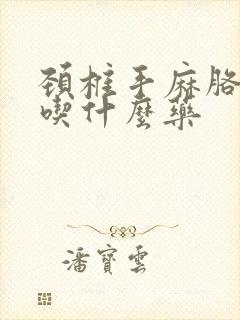 頚椎手麻胳
喫什麼藥
潘寶雲